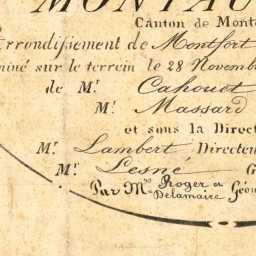 MONTAU
Canton de Monta
rrondissement de Montfort
miné sur le terrein le 28 Novemb
de Mr. Cahouet
Mr. Massard
et sous la Direct
Mr. Lambert Directeu
Mr. Lesné G
Par Mrs. Roger et
Delamaire Géom